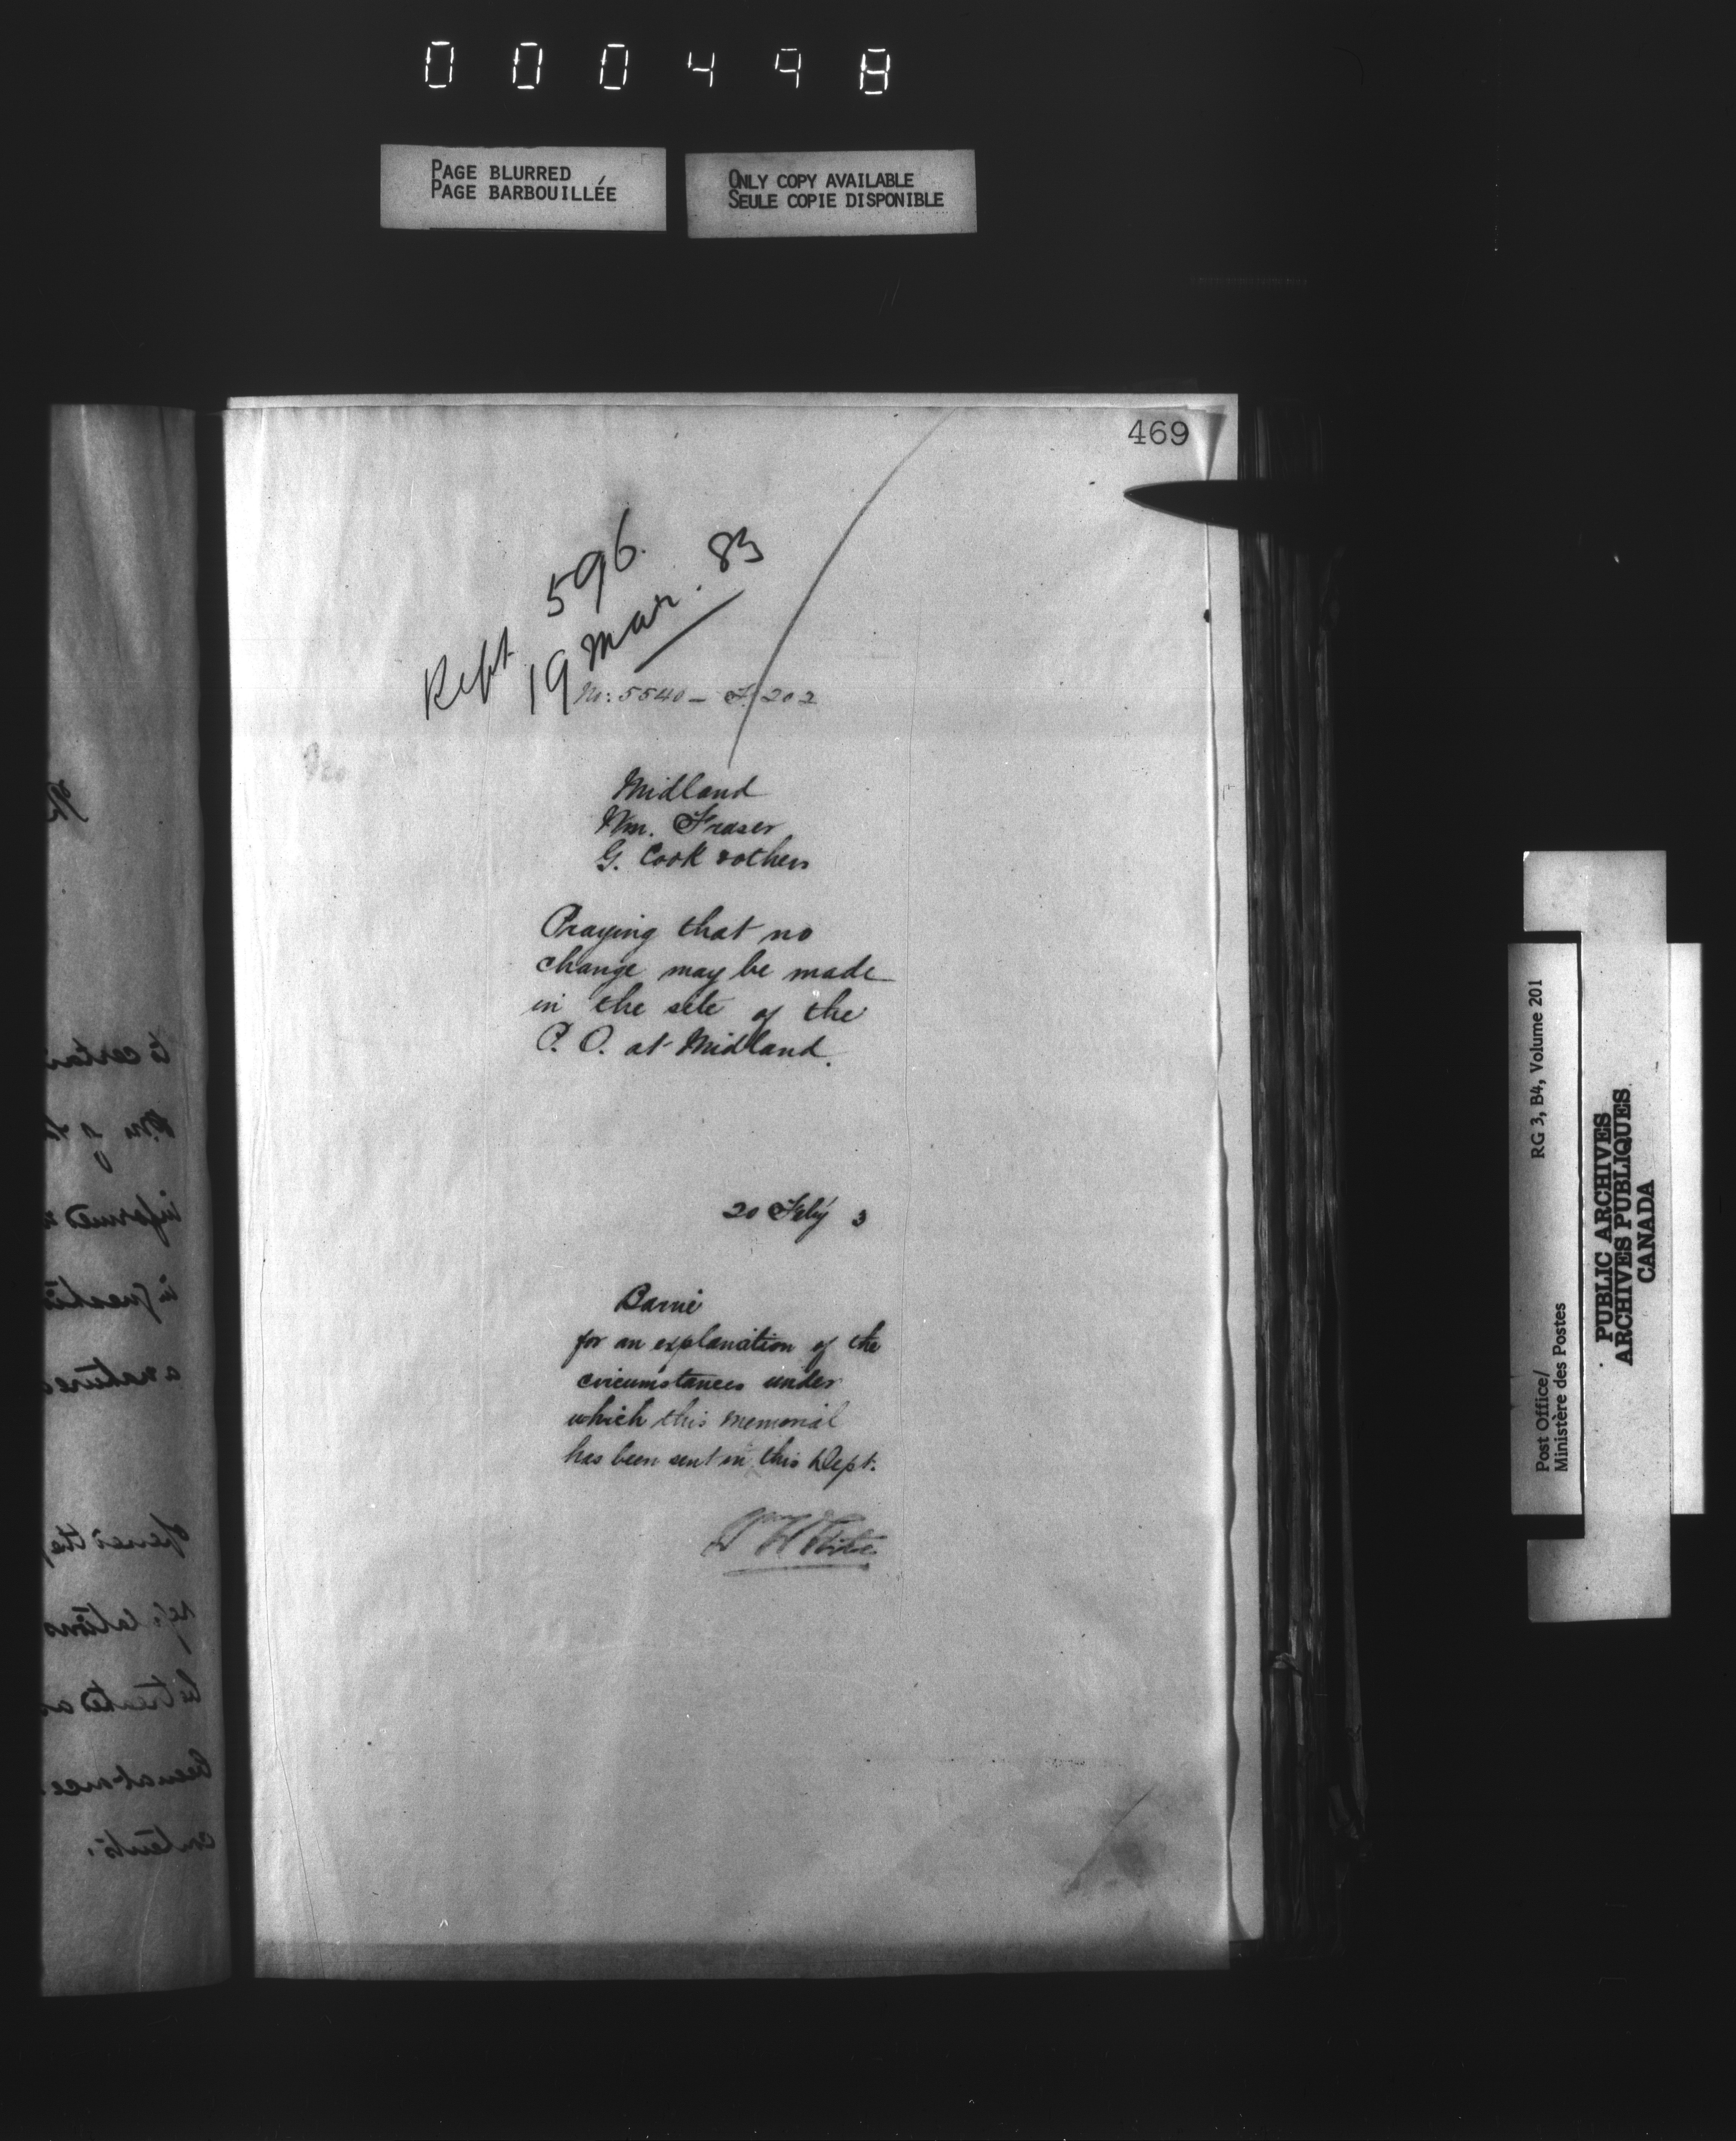 000498
PAGE BLURRED
PAGE BARBOUILLÉE
ONLY COPY AVAILABLE
SEULE COPIE DISPONIBLE
469
Rept 596.
19 Mar. 83
No: 5540 - F. 202
Midland
Wm. Fraser
G. Cook & others
Praying that no
change may be made
in the site of the
P. O. at Midland.
20 Feby 3
Barrie
for an explanation of the
circumstances under
which this memorial
has been sent in this Dept.
Wm H
to certai
informed
in questio
a nature
opened the
be treated as
contents.
Post Office/ RG 3, B4, Volume 201
Ministère des Postes
PUBLIC ARCHIVES
ARCHIVES PUBLIQUES
CANADA